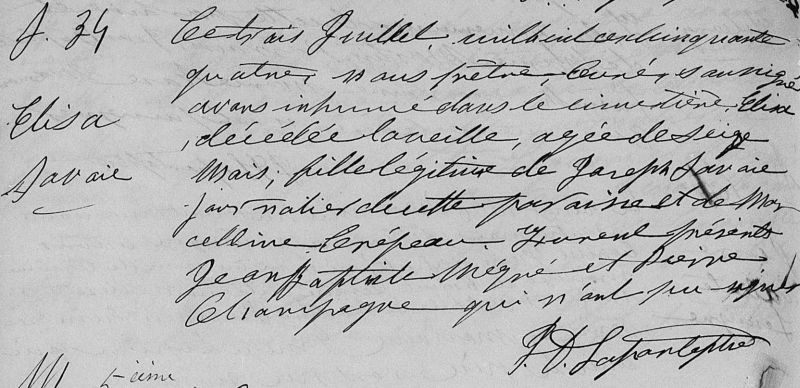 S. 34
Elisa
Savaie
Le trois Juillet, mil huit cent cinquante
quatre, nous prêtre, Curé, soussigné
avons inhumé dans le cimetière, Elisa
, décédée la veille, agée de seize
Mois, fille légitime de Joseph Savaie
journalier de cette paroisse et de Mar
celline Crépeau. Furent présents
Jean Baptiste Mégré et Pierre
Champagne qui n'ont pu signer
5ième